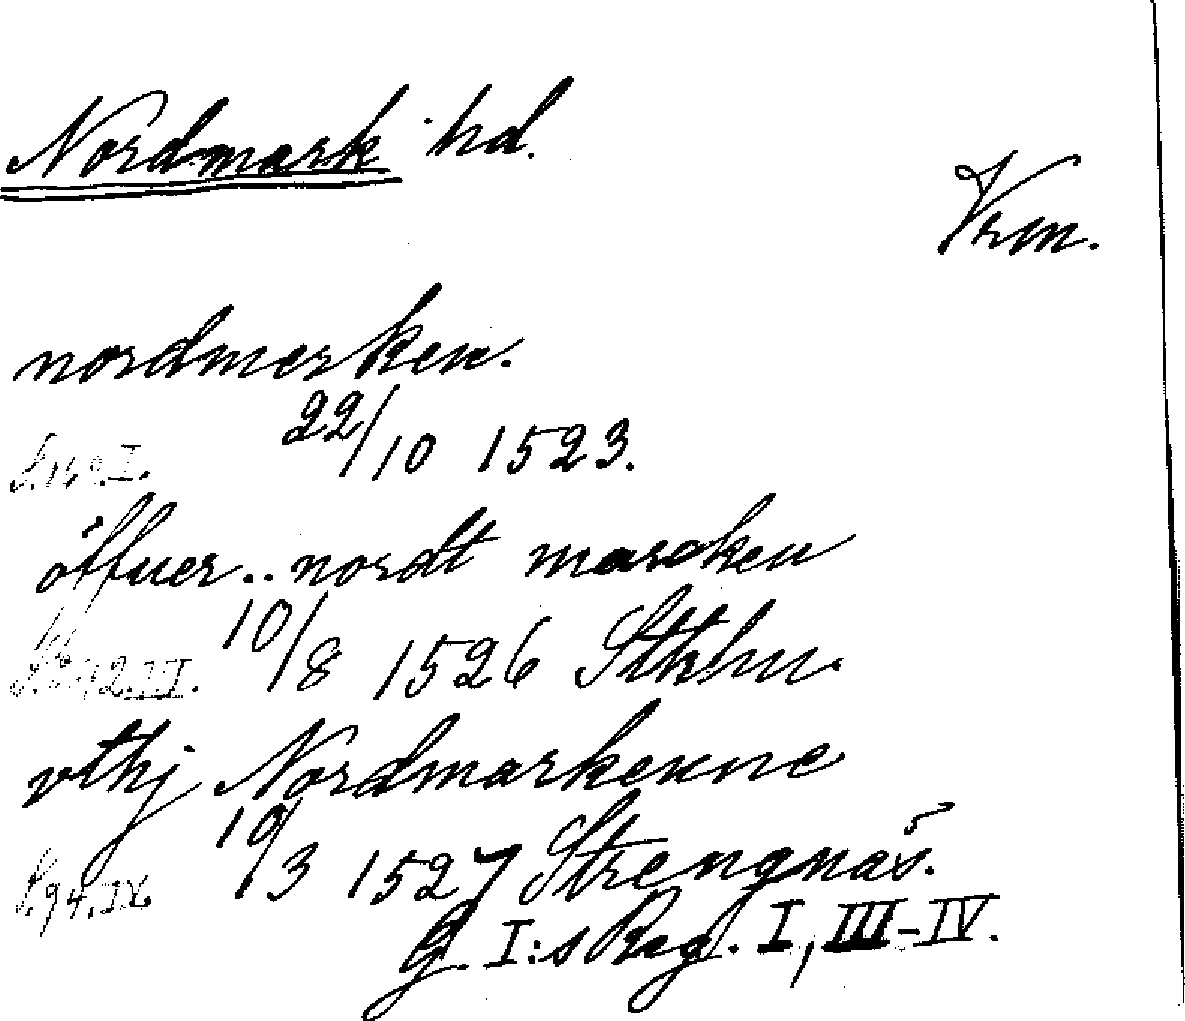 Nordmark hd.
Vrm.
nordmerken.
22/10 1523.
öffuer .. nordt marcken
10/8 1526 Sthlm.
vthj Nordmarkenne
10/3 1527 Strengnäs.
S. 94. IV.
G. I:s Reg. I, III-IV.